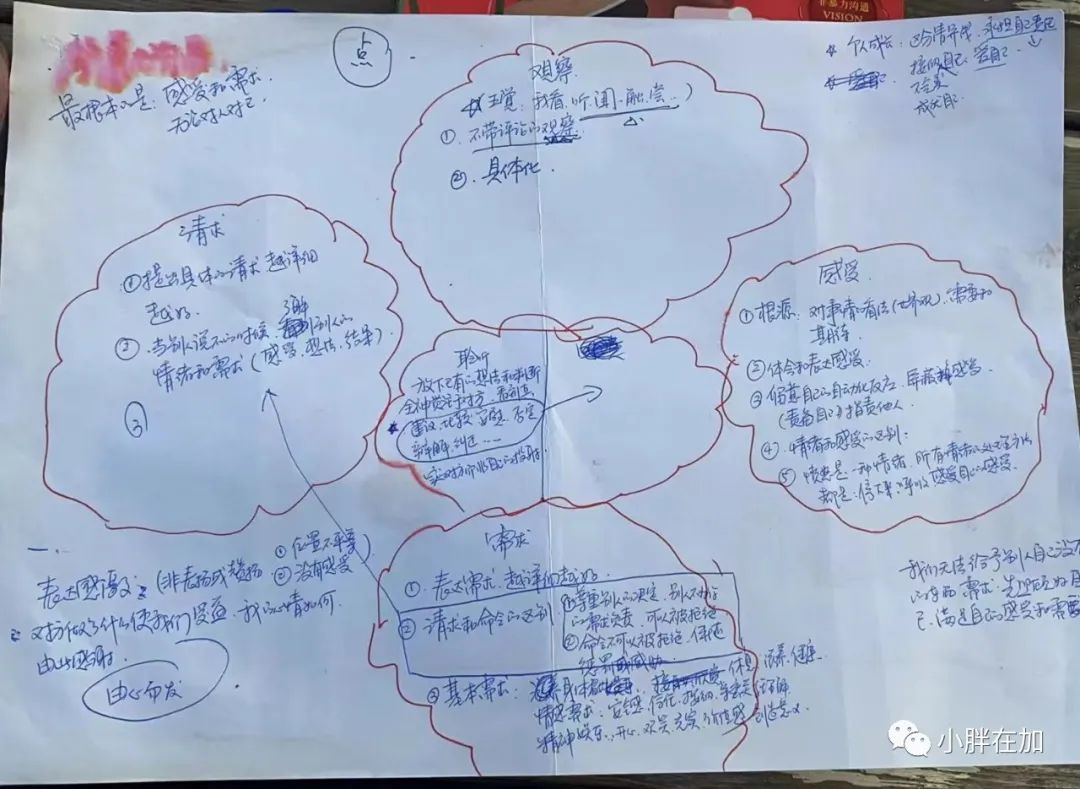 非暴力沟通
VISION
点
最根本的是：感受和需求
无论对人对己
个人成长：
接纳自己 爱自己
观察
五觉：我看、听、闻、触、尝、
① 不带评论的观察
② 具体化
请求
① 提出具体的请求 越详细
越好
② 当别人说不的时候，了解别人的
情绪和需求（感受、想法、结果）
③
聆听
放下已有的想法和判断
全神贯注于对方
建议、比较、安慰、否定
辩解、纠正……
感受
① 根源：对事情的看法（世界观）、需要和
期待
② 体会和表达感受
③ 责备自己 指责他人
④ 情绪和感受的区别：
⑤ 愤怒是一种情绪，所有情绪的处理方法
都是：停下来，呼吸，感受自己的感受
需求
① 表达需求，越详细越好
② 请求和命令的区别
① 尊重别人的决定，别人不为你
的需求负责，可以被拒绝
② 命令不可以被拒绝
③ 基本需求：
休息
情感需求：安全感、信任、接纳、理解
精神
开心、欢笑、充实、价值感、创造、意义
一、
表达感激：（非表扬或赞扬
① 位置不平等
② 没有感受
对方做了什么使我们受益，我的心情如何，
由此感谢
由心而发
我们无法给予别人自己没有
的
己，满足自己的感受和需要
小胖在加